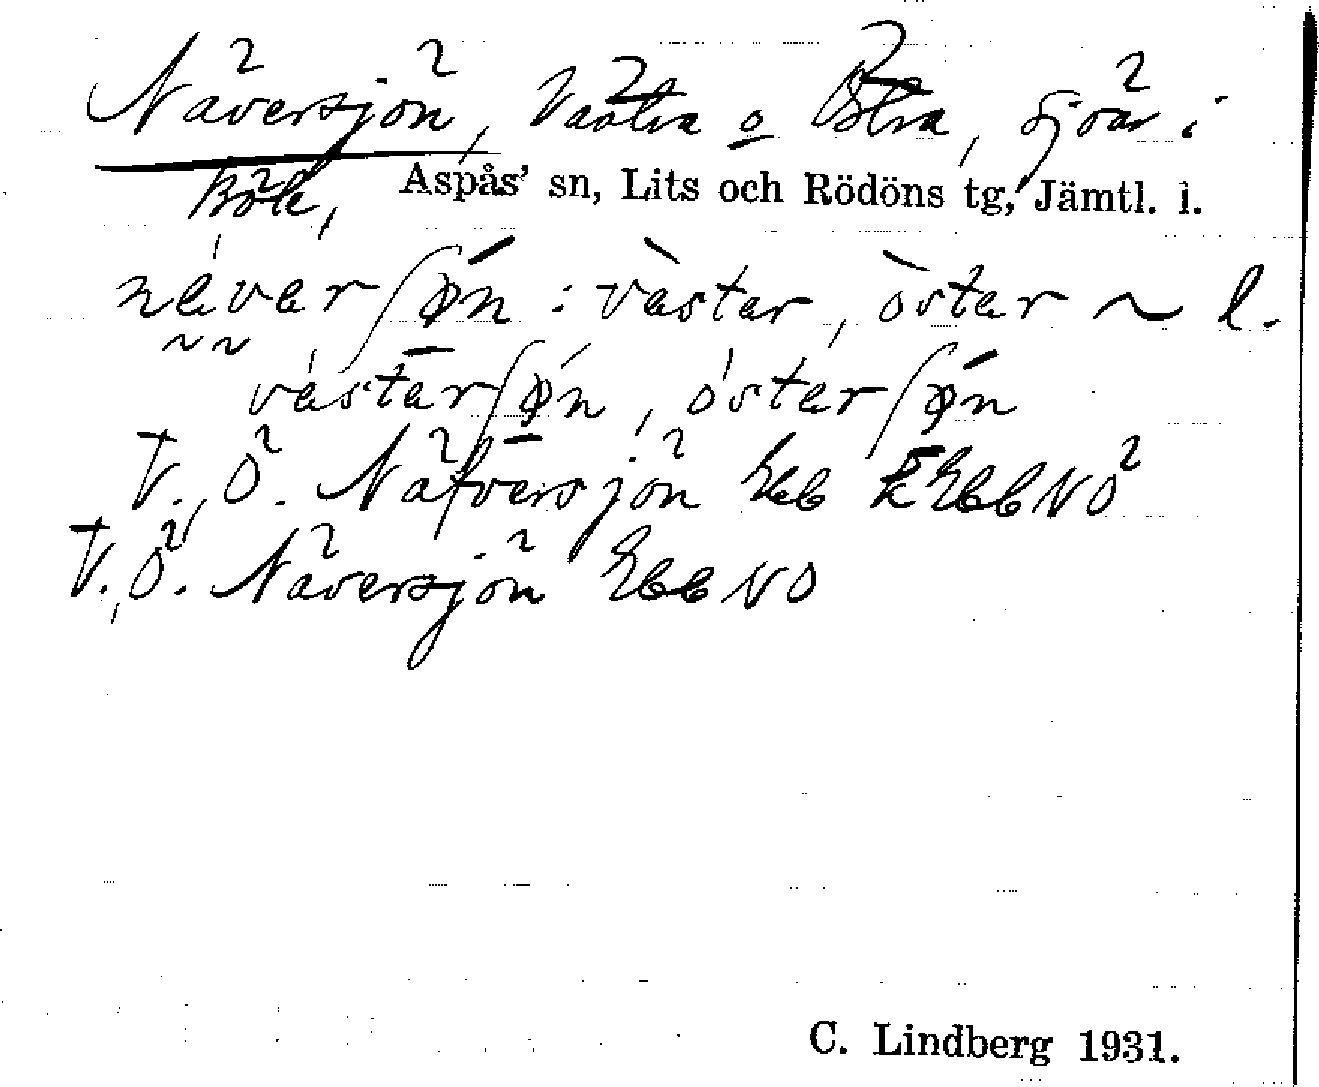 Näversjön, Västra o Östra, sjöar i
Böle, Aspås' sn, Lits och Rödöns tg, Jämtl. l.
näverʃøn : vàster, òster ~ l.
västerʃøn, österʃøn
V., Ö. Näfversjön Eeb NÖ
V., Ö. Näversjön NO
C. Lindberg 1931.